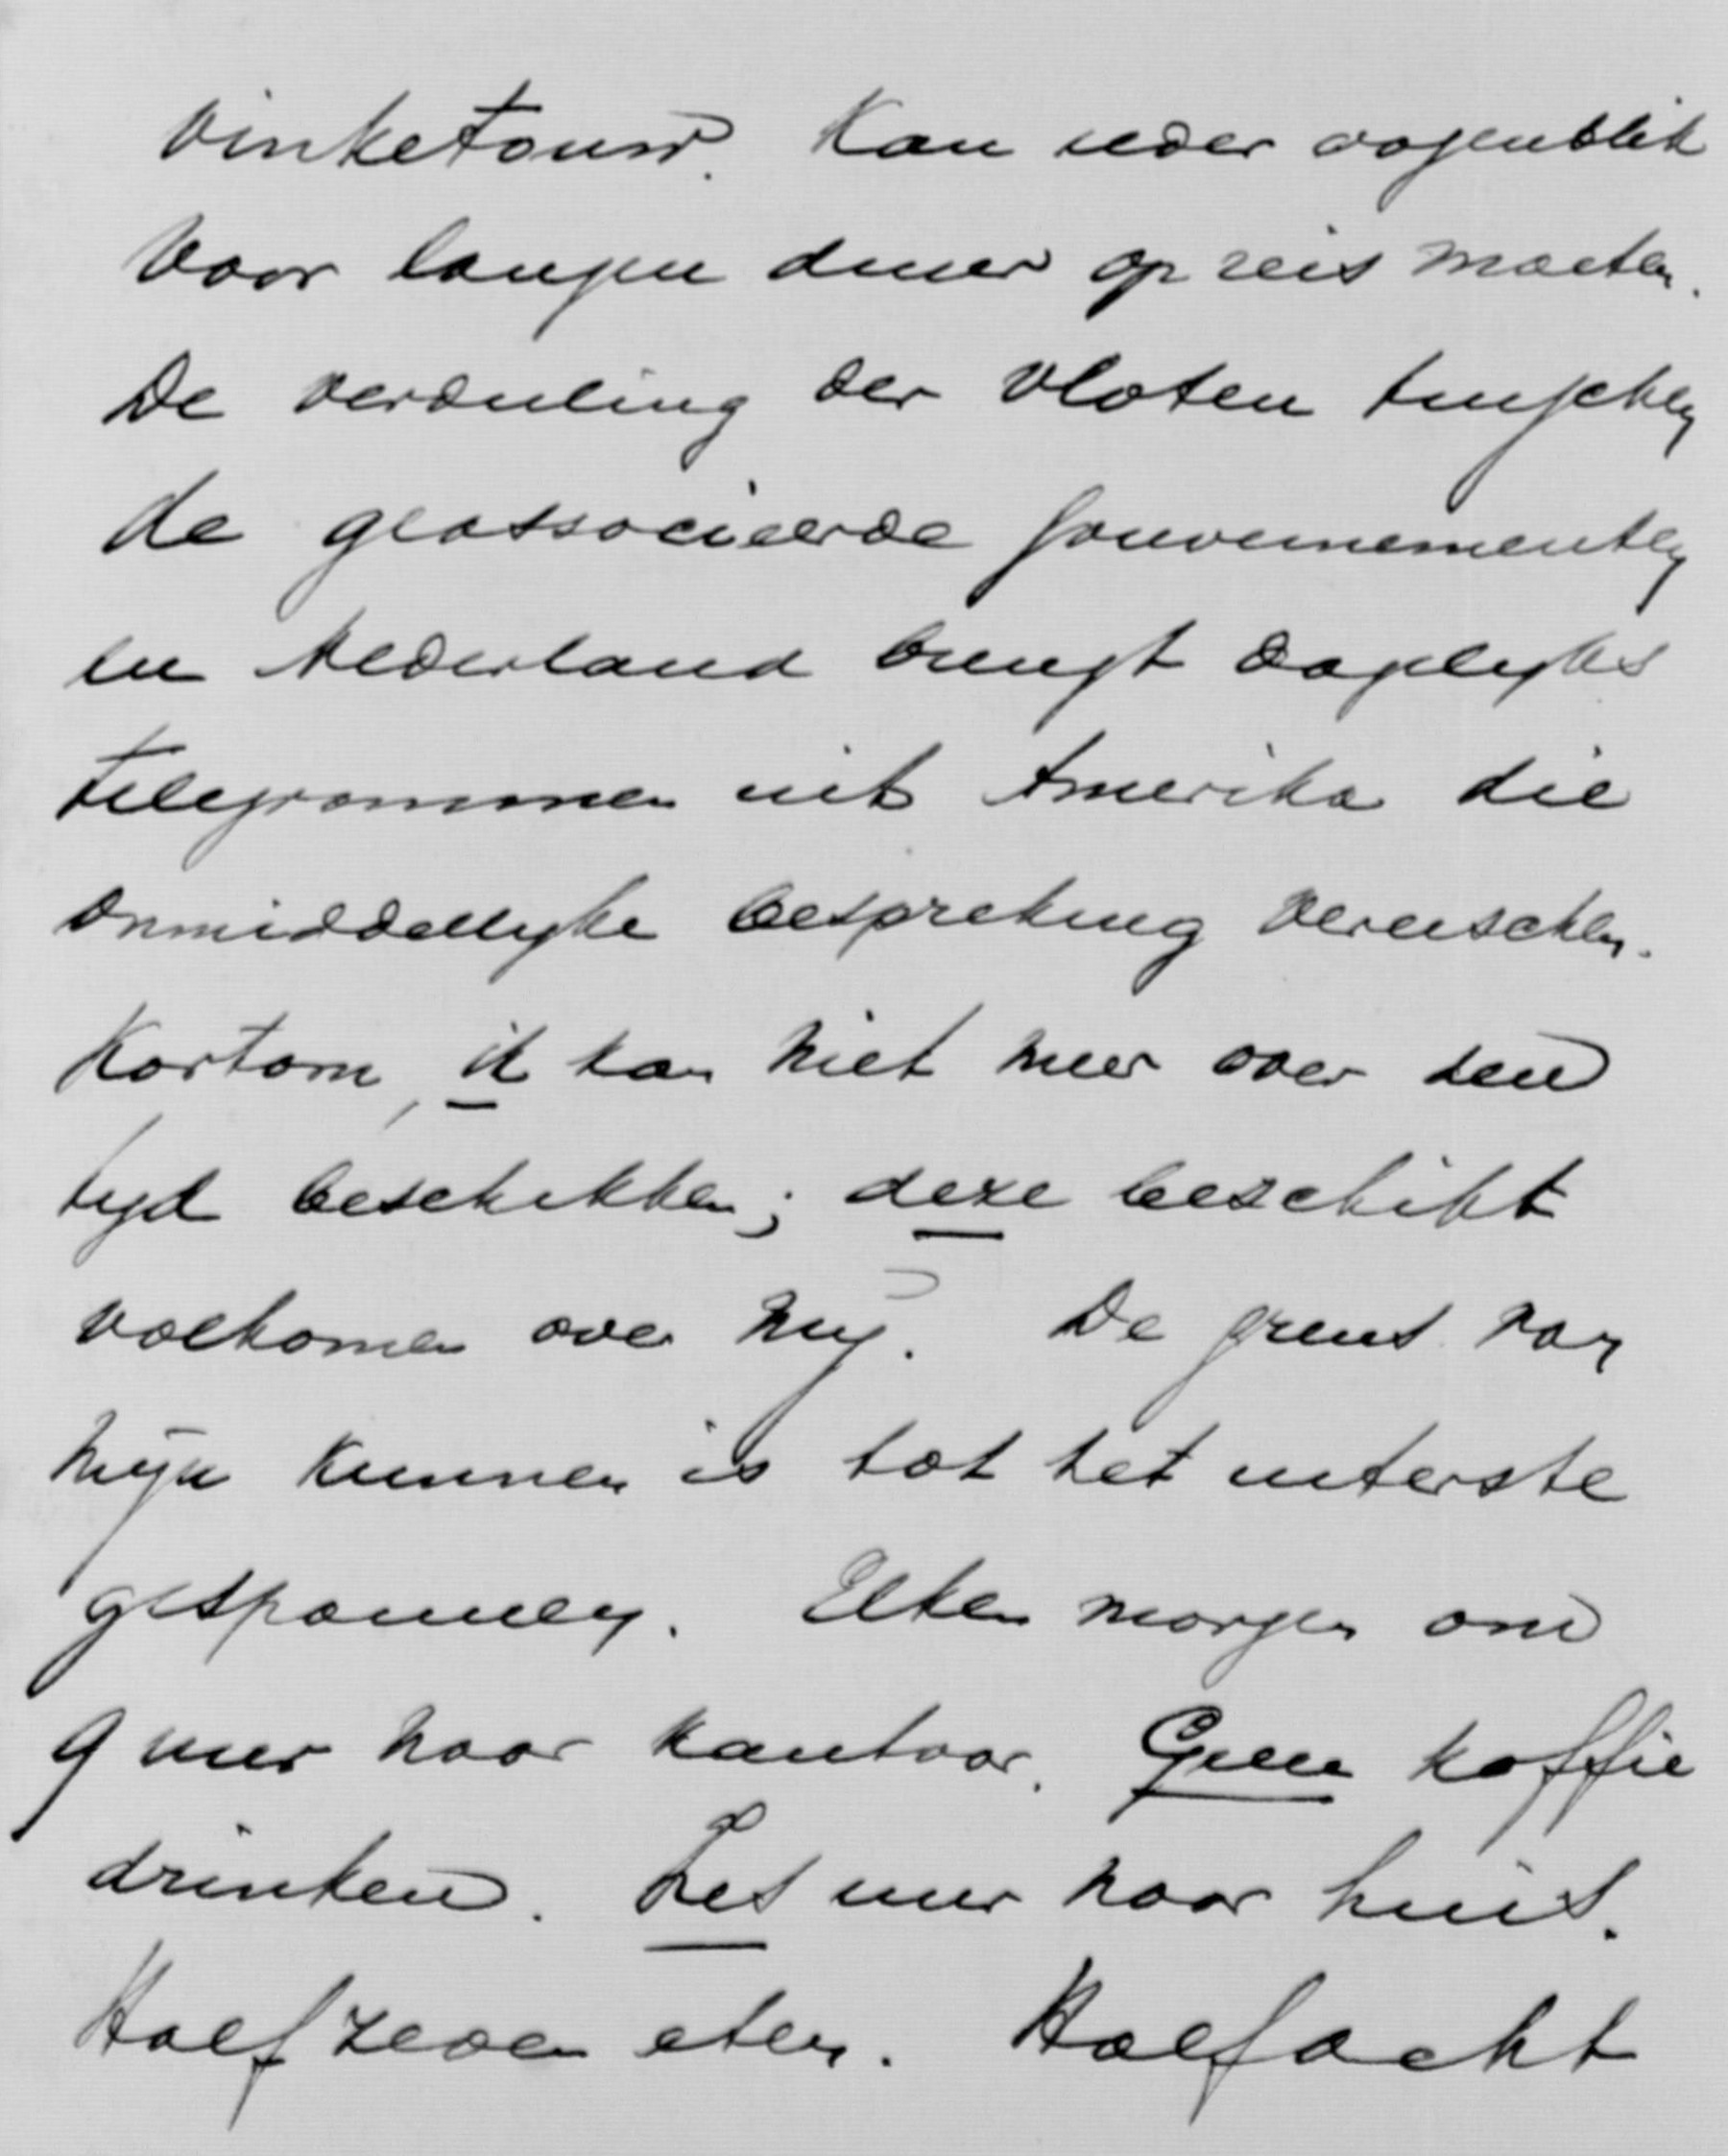 vinketouw. Kan ieder oogenblik
voor langen duur op reis moeten.
De verdeeling der vloten tusschen
de geassocieerde gouvernementen
en Nederland brengt dagelyks
telegrammen uit Amerika die
onmiddellyke bespreking vereischen.
Kortom, ik kan niet meer over den
tyd beschikken; deze beschikt
volkomen over my. De grens van
myn kunnen is tot het uiterste
gespannen. Elken morgen om
9 uur naar kantoor. Geen koffie
drinken. Zes uur naar huis.
Half zeven eten. Half acht